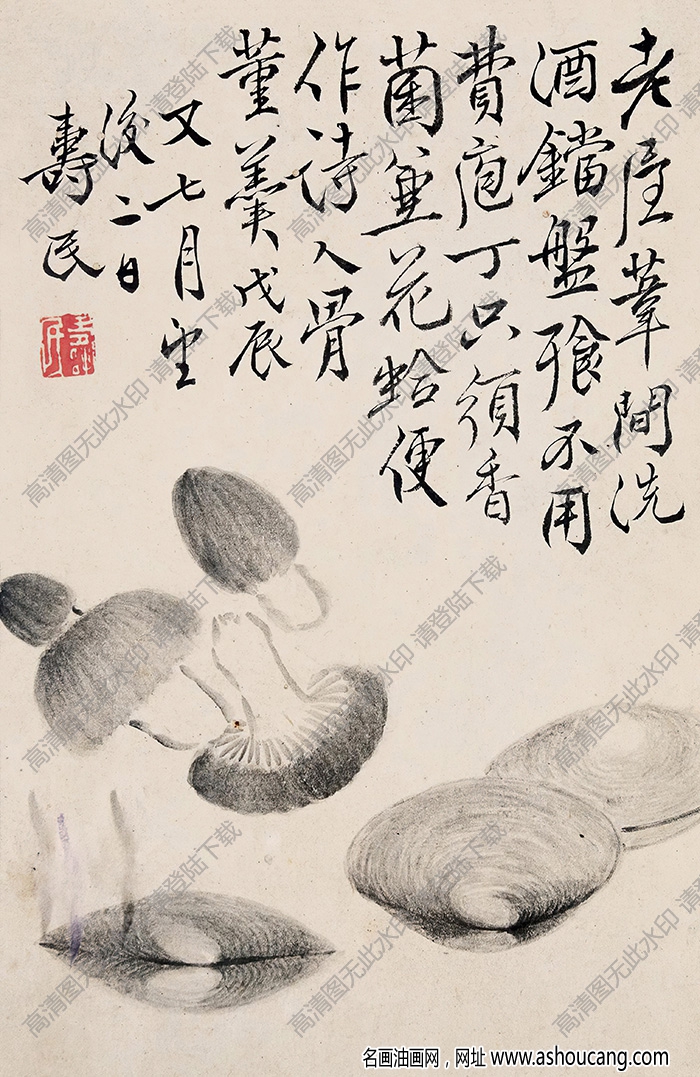 老屋葦間洗
酒鐺盤飱不用
費庖丁只須香
菌兼花蛤便
作詩人骨
董羹戊辰
又七月望
後二日
壽民
壽民
高清图无此水印 请登陆下载
名画油画网，网址 www.ashoucang.com